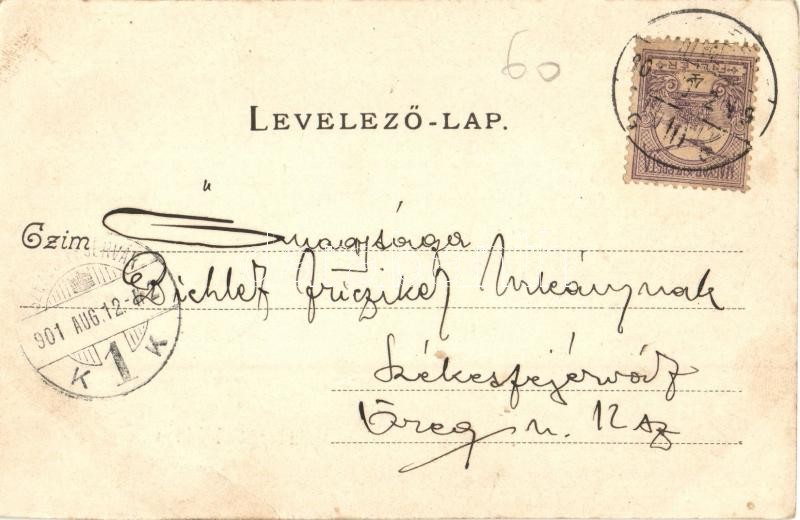 60
LEVELEZŐ-LAP.
MAGYAR KIR. POSTA
Czim Önagysága
Richlet Friczike Urleánynak
901 AUG. 12.
K 1 K
Székesfejérvár
Öreg u. 12 sz